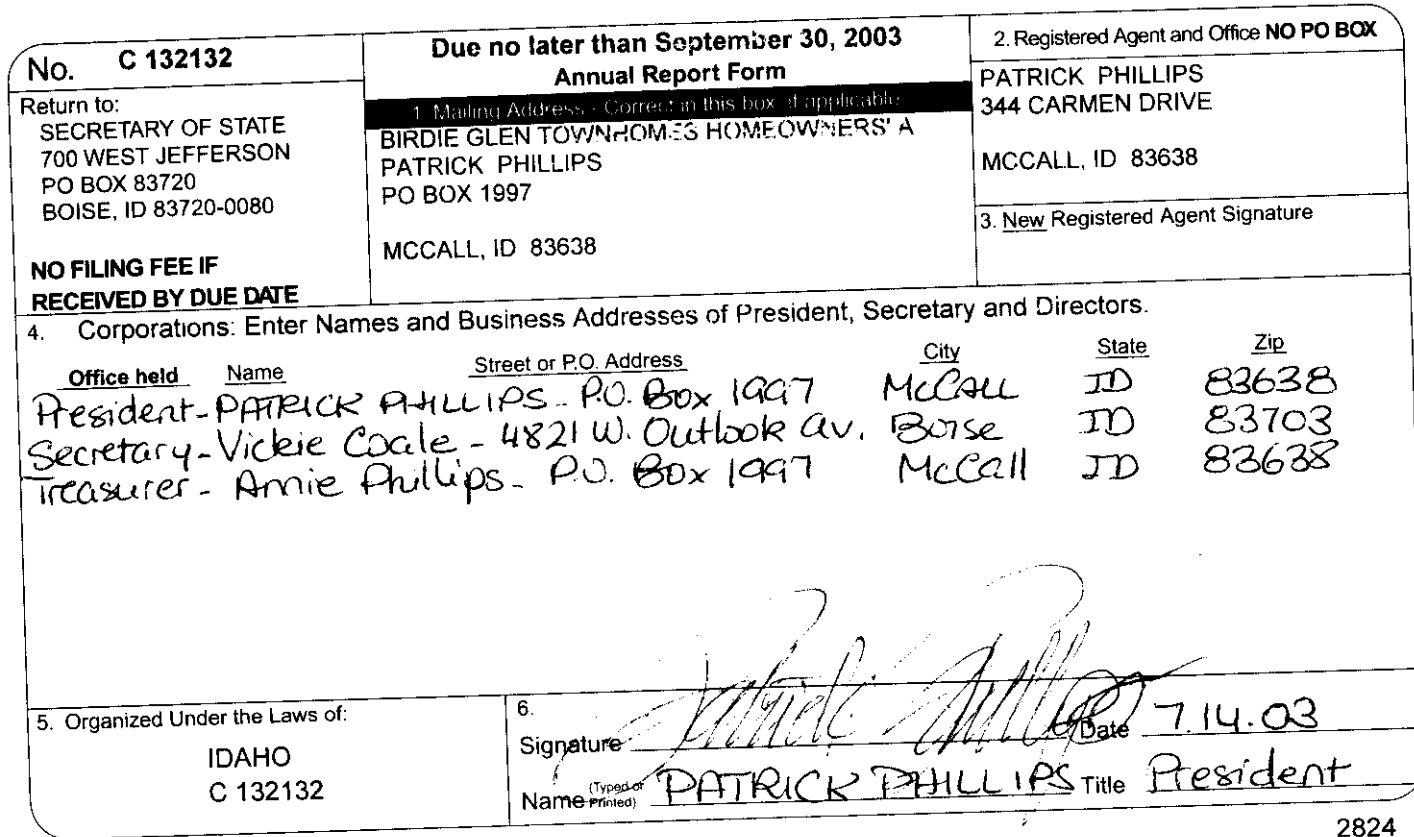 No. C 132132
Return to:
SECRETARY OF STATE
700 WEST JEFFERSON
PO BOX 83720
BOISE, ID 83720-0080
NO FILING FEE IF
RECEIVED BY DUE DATE
Due no later than September 30, 2003
Annual Report Form
1. Mailing Address - Correct in this box if applicable
BIRDIE GLEN TOWNHOMES HOMEOWNERS' A
PATRICK PHILLIPS
PO BOX 1997
MCCALL, ID 83638
2. Registered Agent and Office NO PO BOX
PATRICK PHILLIPS
344 CARMEN DRIVE
MCCALL, ID 83638
3. New Registered Agent Signature
4. Corporations: Enter Names and Business Addresses of President, Secretary and Directors.
Office held Name Street or P.O. Address City State Zip
President - PATRICK PHILLIPS - P.O. Box 1997 McCALL ID 83638
Secretary - Vickie Coale - 4821 W. Outlook av. Boise ID 83703
Treasurer - Amie Phillips - P.O. Box 1997 McCall ID 83638
5. Organized Under the Laws of:
IDAHO
C 132132
6.
Signature Patrick Phillips Date 7.14.03
Name (Typed or Printed) PATRICK PHILLIPS Title President
2824